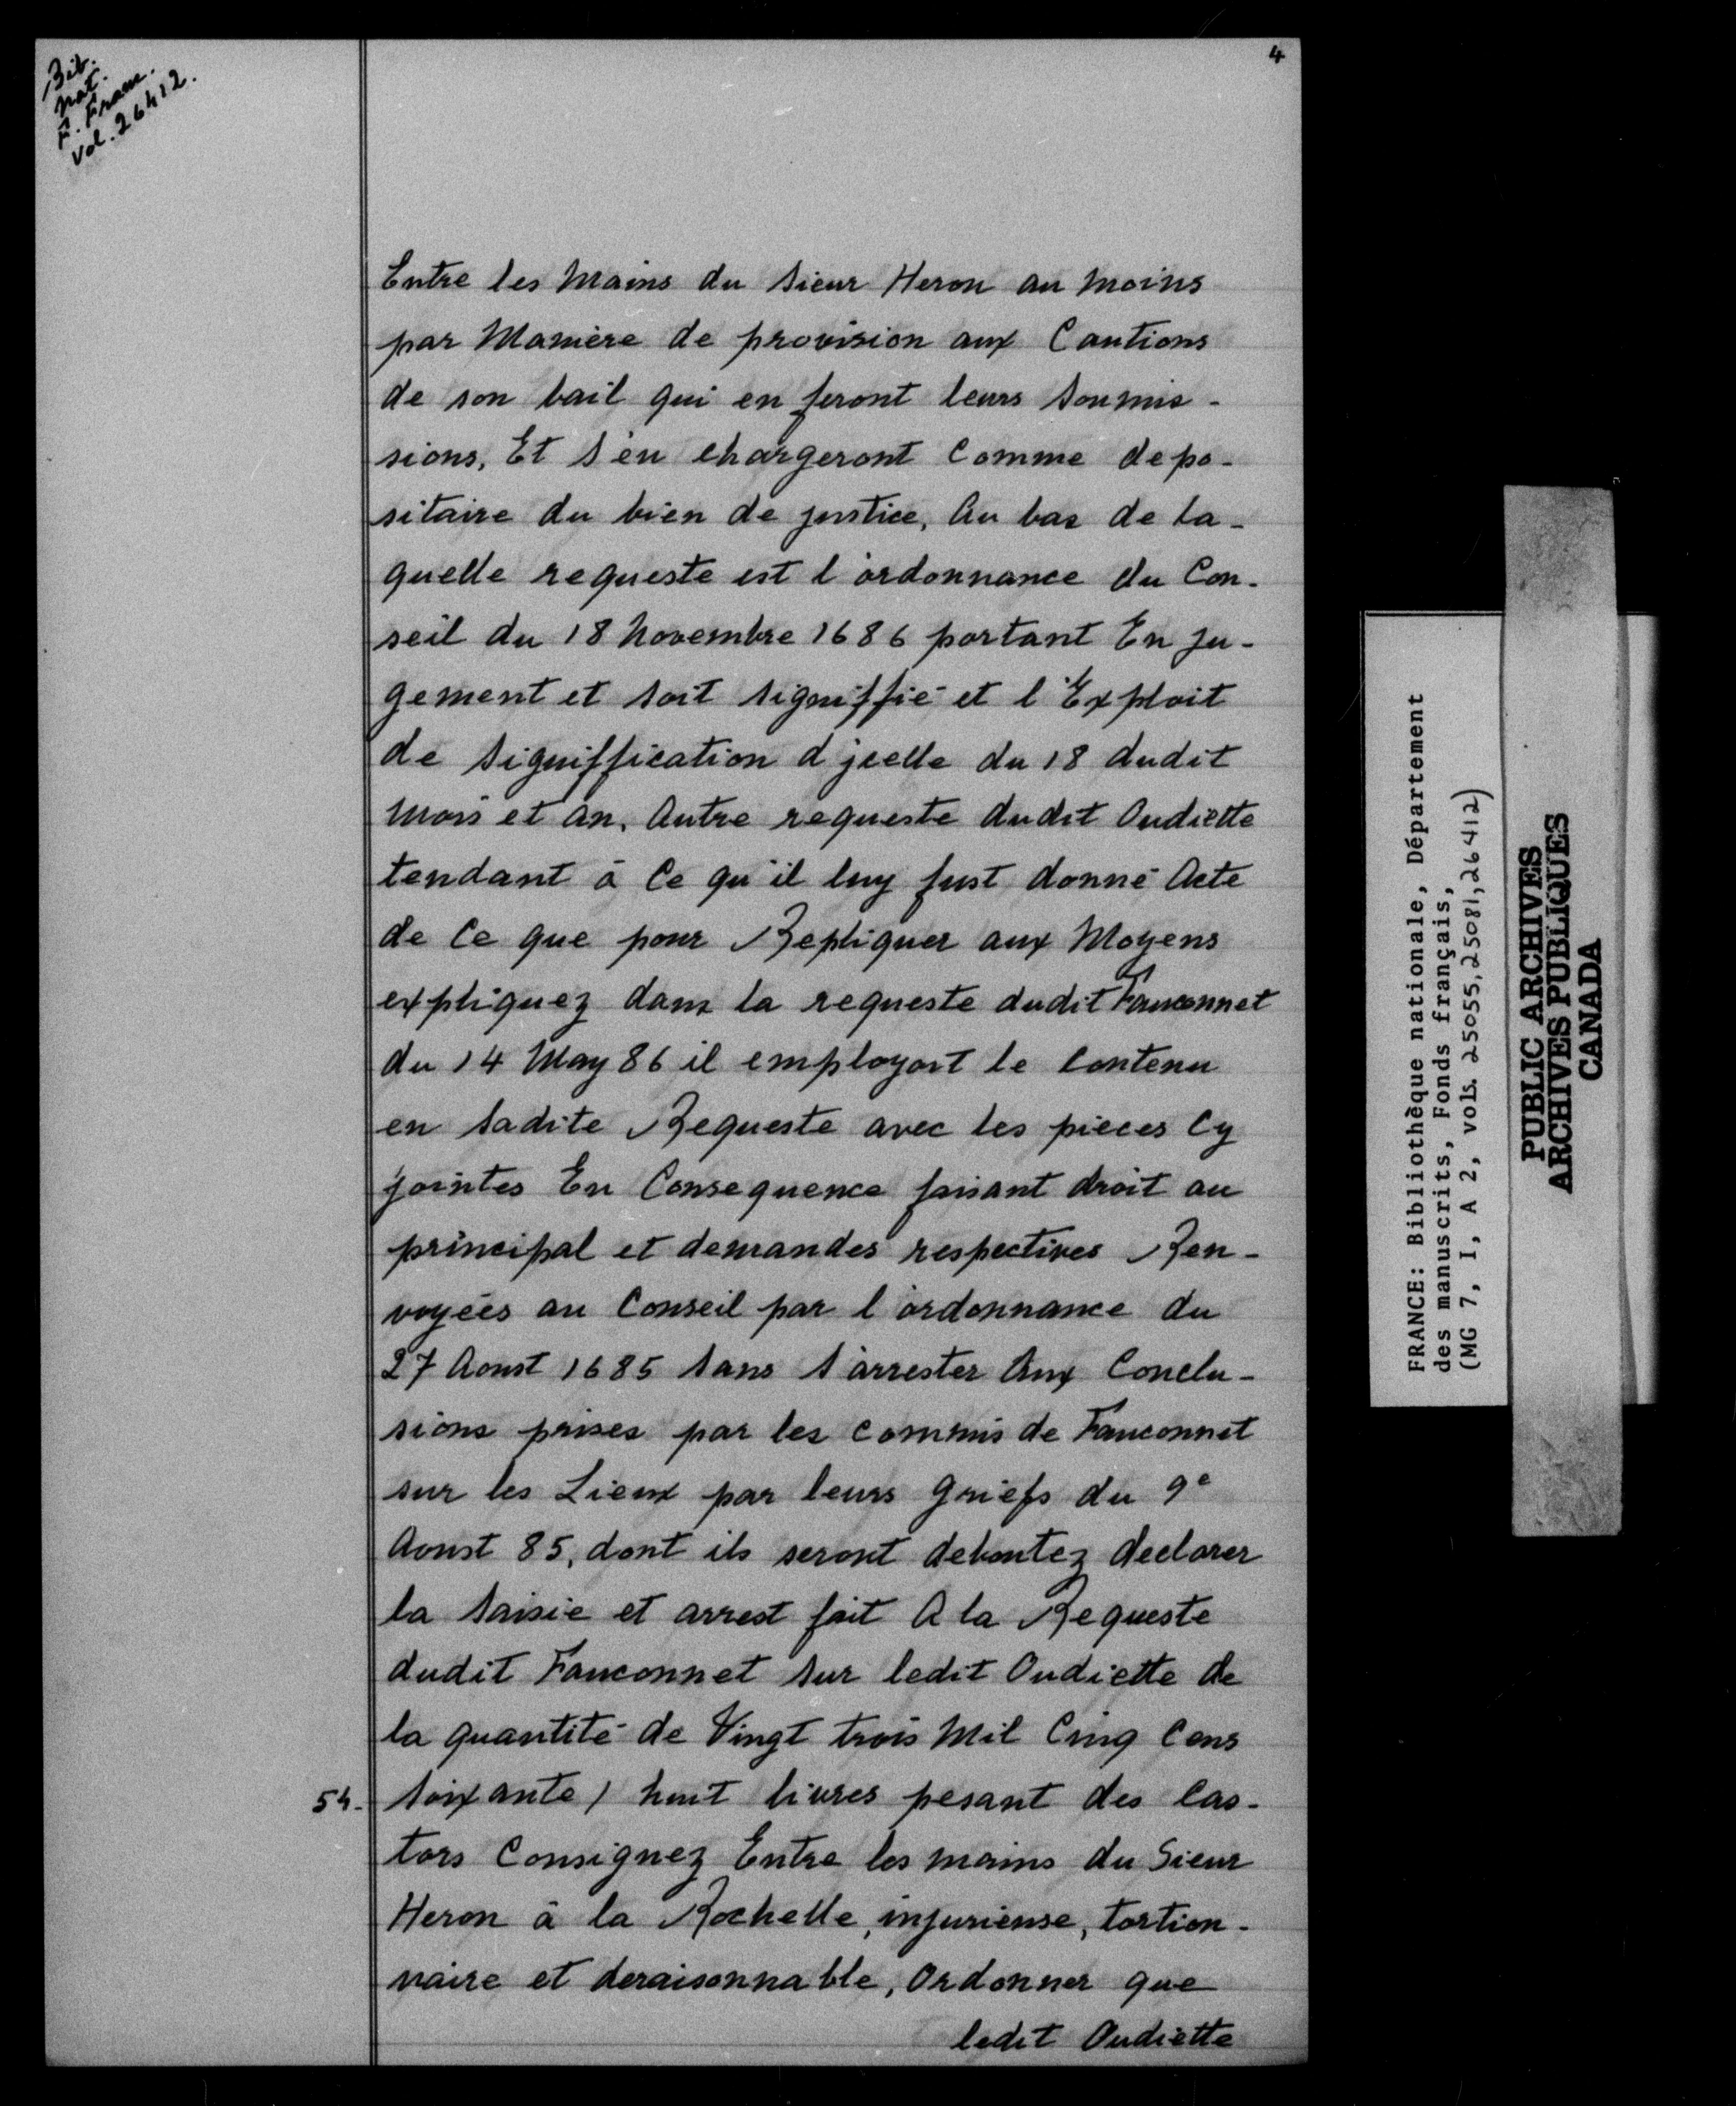 Bib.
nat.
F. Franc.
Vol. 26412.
4
Entre les Mains du Sieur Heron au moins
par Maniere de provision aux Cautions
de son bail qui en feront leurs soumis-
sions, Et s'en chargeront Comme depo-
sitaire du bien de justice, Au bas de la-
quelle requeste est l'ordonnance du Con-
seil du 18 Novembre 1686 portant En ju-
gement et soit signiffié et l'Exploit
de signiffication d'jcelle du 18 dudit
Mois et an, Autre requeste dudit Oudiette
tendant à Ce qu'il luy fust donné Acte
de Ce que pour Repliquer aux Moyens
expliquez dans la requeste dudit Fauconnet
du 14 May 86 il employoit le Contenu
en sadite Requeste avec les pieces Cy
jointes En Consequence faisant droit au
principal et demandes respectives Ren-
voyées au Conseil par l'ordonnance du
27 Aoust 1685 sans s'arrester Aux Conclu-
sions prises par les Commis de Fauconnet
sur les Lieux par leurs Griefs du 9e
Aoust 85, dont ils seront deboutez declarer
la Saisie et arrest fait A la Requeste
dudit Fauconnet sur ledit Oudiette de
la quantité de Vingt trois Mil Cinq Cens
54. Soixante / huit livres pesant des Cas-
tors Consignez Entre les mains du Sieur
Heron à la Rochelle, injurieuse, tortion-
naire et deraisonnable, Ordonner que
ledit Oudiette
FRANCE: Bibliothèque nationale, Département
des manuscrits, Fonds français,
(MG 7, I, A 2, vols. 25055, 25081, 26412)
PUBLIC ARCHIVES
ARCHIVES PUBLIQUES
CANADA